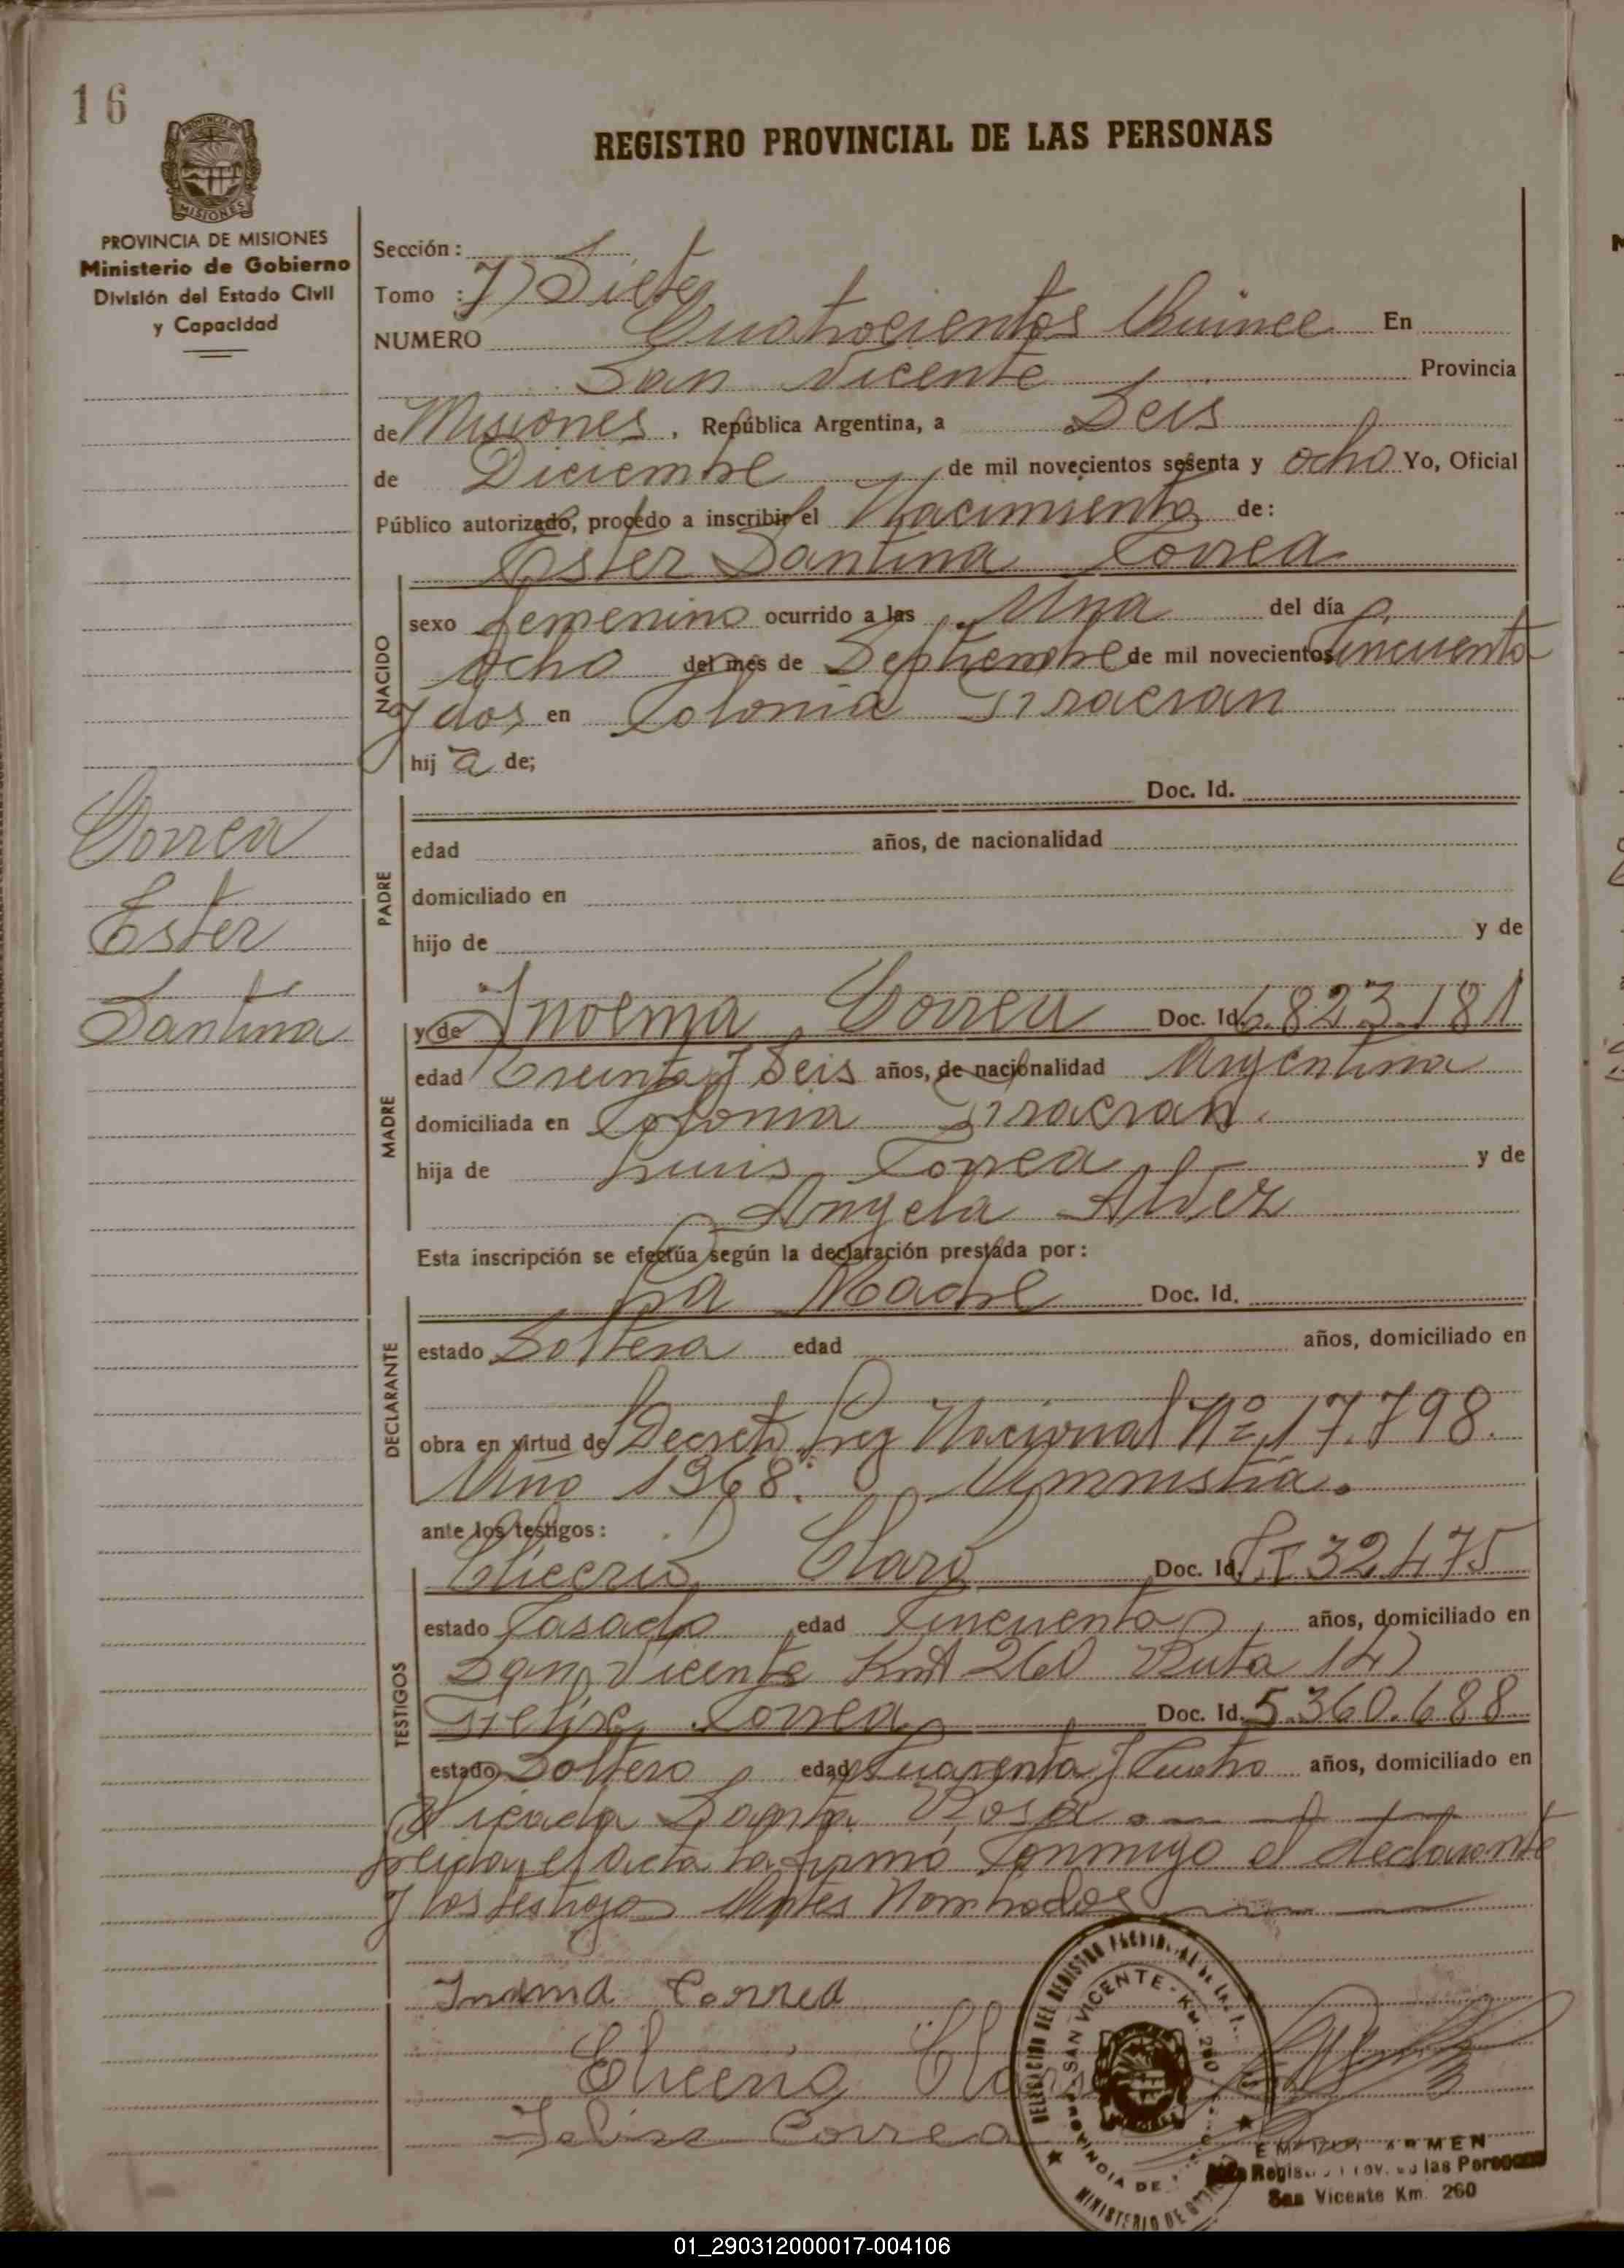 16
REGISTRO PROVINCIAL DE LAS PERSONAS
PROVINCIA DE MISIONES
MISIONES
PROVINCIA DE MISIONES
Ministerio de Gobierno
División del Estado Civil
y Capacidad
Sección :
Tomo : 7) Siete
NUMERO Cuatrocientos Quince En
San Vicente Provincia
de Misiones, República Argentina, a Seis
de Diciembre de mil novecientos sesenta y ocho Yo, Oficial
Público autorizado, procedo a inscribir el Nacimiento de:
Ester Santina Correa
NACIDO
sexo femenino ocurrido a las Una del día
ocho del mes de Septiembre de mil novecientos cincuenta
y dos en Colonia
hij a de;
Correa
Ester
Santina
PADRE
Doc. Id.
edad años, de nacionalidad
domiciliado en
hijo de y de
MADRE
y de Correa Doc. Id. 6.823.181
edad Treinta y Seis años, de nacionalidad Argentina
domiciliada en Colonia
hija de Luis Correa y de
Angela Alvez
Esta inscripción se efectúa según la declaración prestada por:
DECLARANTE
La Madre Doc. Id.
estado Soltera edad años, domiciliado en
obra en virtud de Decreto Ley Nacional Nº 17.798.
Año 1968. Amnistia.
ante los testigos:
TESTIGOS
Claro Doc. Id. 32475
estado Casado edad Cincuenta años, domiciliado en
San Vicente Km 260 Ruta 14)
Correa Doc. Id. 5.360.688
estado Soltero edad Cuarenta y Cuatro años, domiciliado en
Picada Santa Rosa
leida el acta la firmó Conmigo el declarante
y los testigos Antes Nombrados
Correa
Correa
SAN VICENTE - KM. 260
MINISTERIO DE
San Vicente Km. 260
01_290312000017-004106